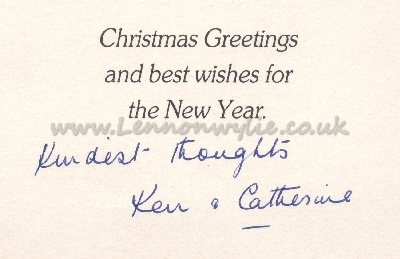 Christmas Greetings
and best wishes for
the New Year.
www.Lennonwylie.co.uk
Kindest thoughts
Ken & Catherine